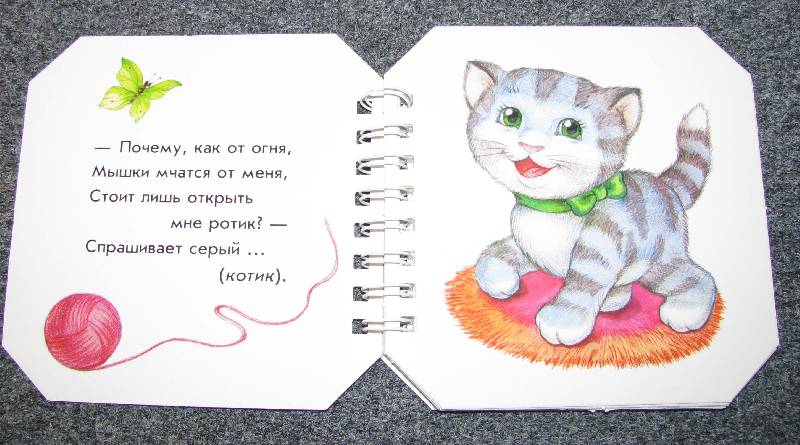 — Почему, как от огня,
Мышки мчатся от меня,
Стоит лишь открыть
мне ротик? —
Спрашивает серый ...
(котик).